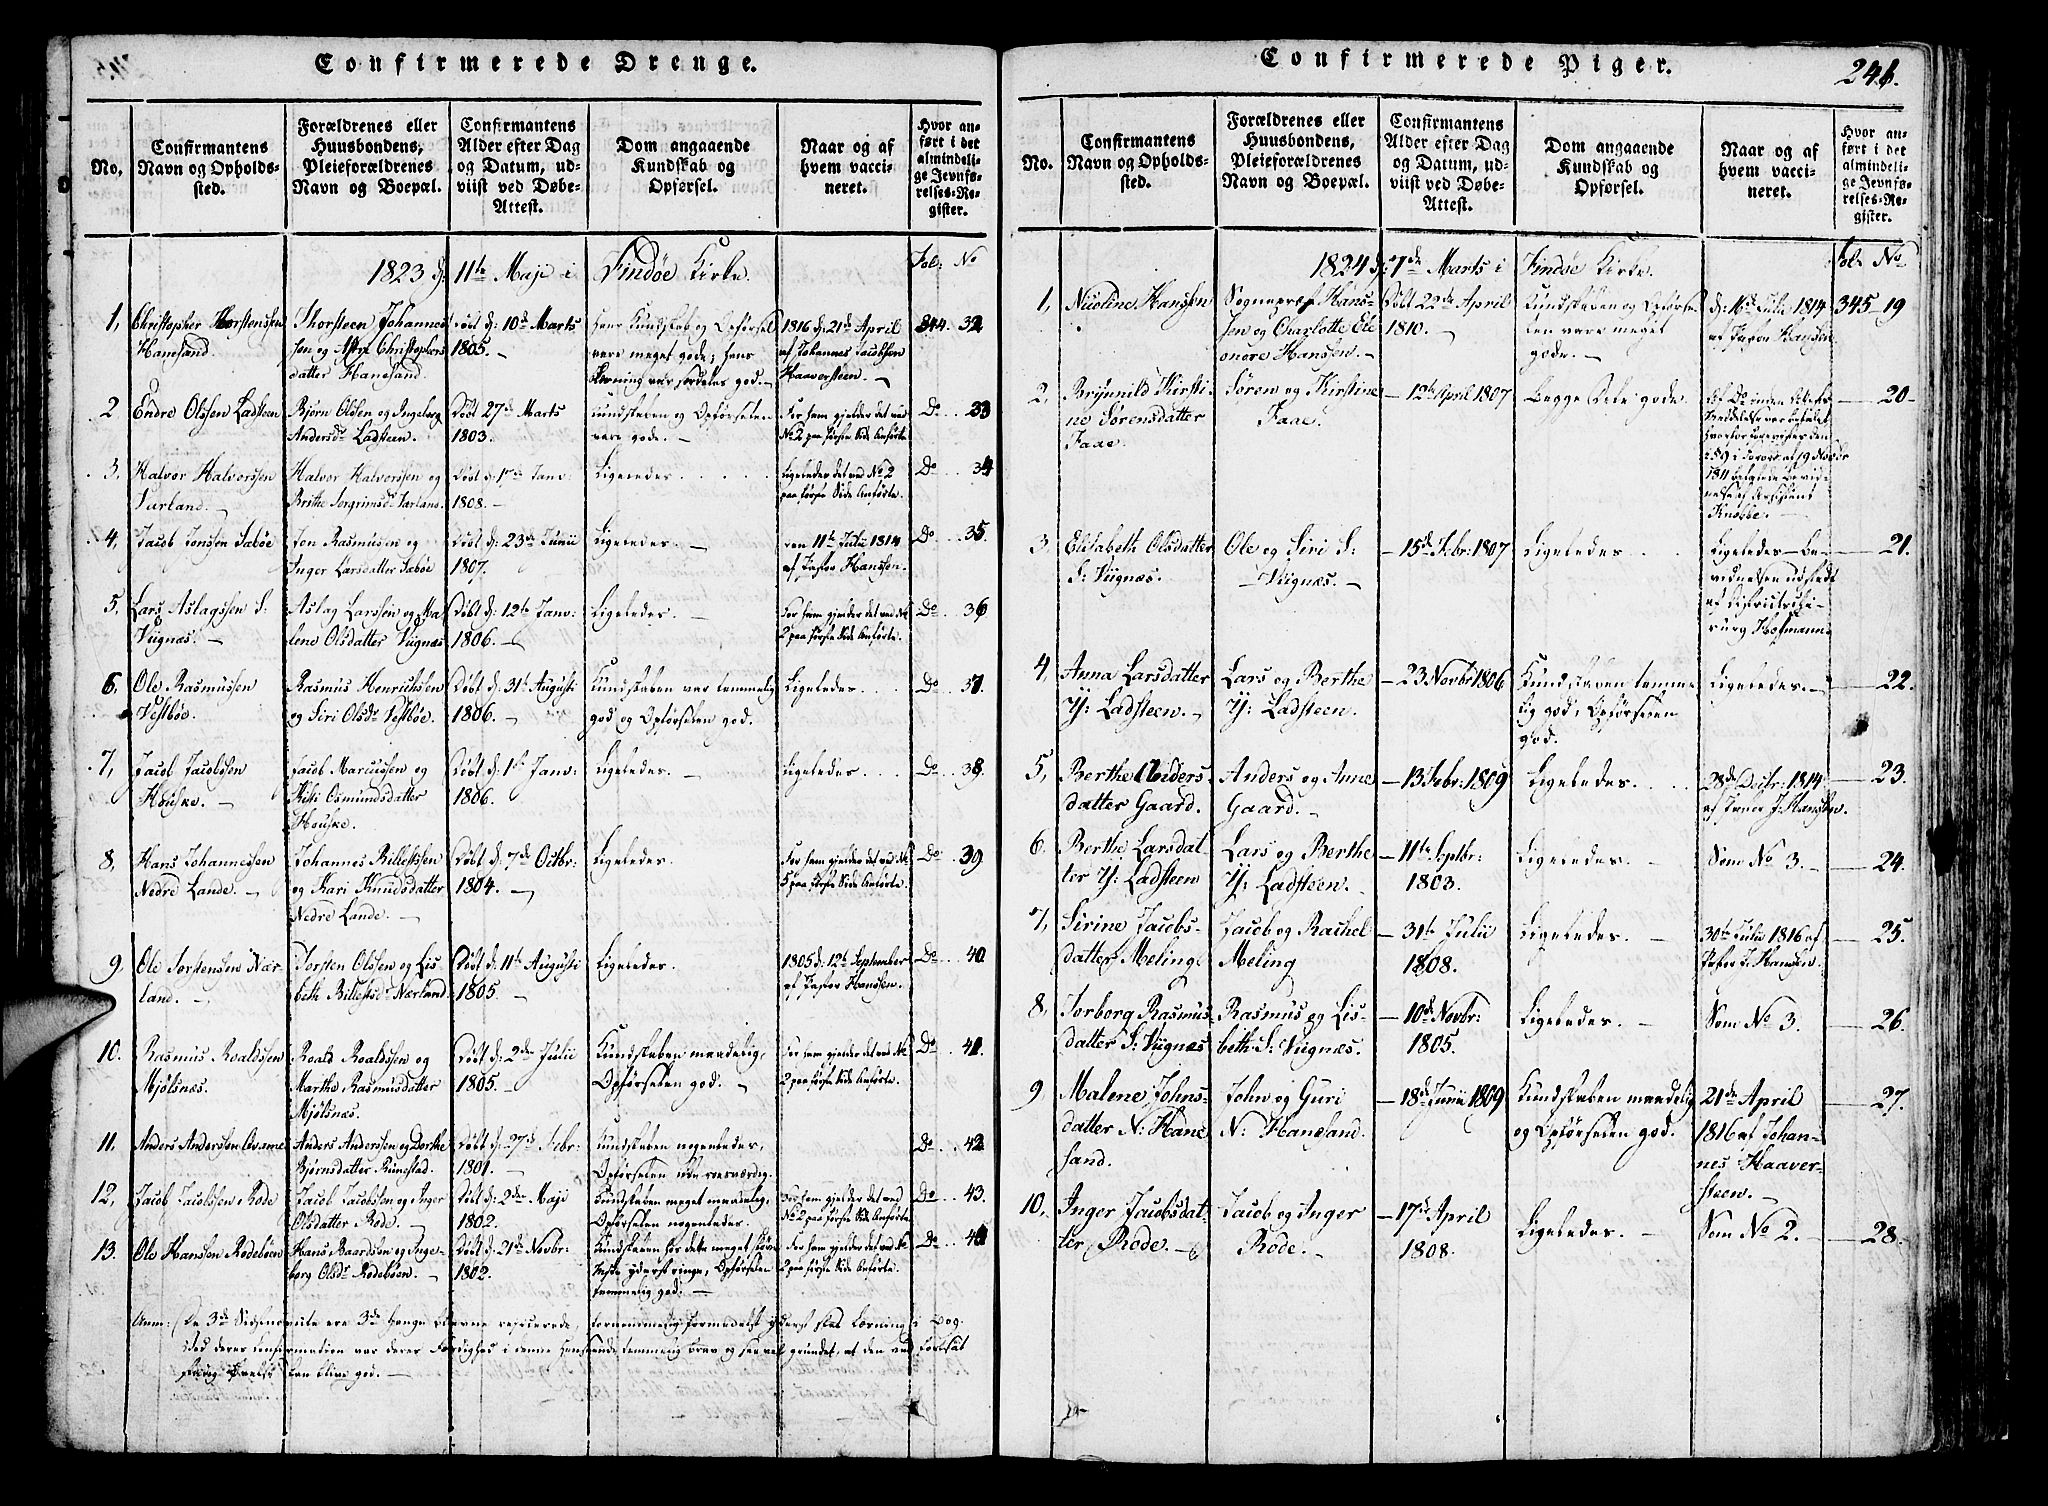 Confirmerede Drenge.
No.
Confirmantens
Navn og Opholds-
sted.
Forældrenes eller
Huusbondens,
Pleieforældrenes
Navn og Boepæl.
Confirmantens
Alder efter Dag
og Datum, ud-
viist ved Døbe-
Attest.
Dom angaaende
Kundskab og
Opførsel.
Naar og af
hvem vacci-
neret.
Hvor an-
ført i det
almindeli-
ge Jevnfø-
relses-Re-
gister.
1823 d: 11te Maji i Findøe Kirke.
Fol: No
1,
Christopher Thorstensen
Hanesand.
Thorsteen Johannes
sen og Astri Christophers
datter Hanesand.
Døbt d: 10de Marts
1805. –
Hans Kundskab og Opførsel
vare meget gode; hans
Læsning var særdeles god. –
1816 d. 21de April
af Johannes Jacobsen
Haaversteen. –
344. 32
2
Endre Olssen Ladsteen
Bjørn Olsen og Ingeborg
Andersdr Ladsteen.
Døbt 27de Marts
1803.
Kundskaben og Opførselen
vare gode. –
For ham gjelder det ved
No 2 paa første Side Anførte.
Do . . . 33
3,
Halvor Halvorssen
Varland.
Halvor Halvorssen og
Brithe Torgrimsdr Varland.
Døbt d: 1ste Janv.
1808. –
Ligeledes. . . . .
Ligeledes det ved No 2
paa første Side Anførte.
Do . . . 34
4,
Jacob Jonssen Sæbøe
Jon Rasmussen og
Inger Larsdatter Sæbøe
Døbt d: 23de Junii
1807.
Ligeledes. –
den 11te Julii 1814
af Pastor Hanssen.
Do . . . 35
5,
Lars Aslagssen S:
Viignæs. –
Aslag Larssen og Ma-
lene Olsdatter Viignæs
Døbt d: 12te Janv.
1806. –
Ligeledes.
For ham gjelder det ved No
2 paa første Side Anførte.
Do . . . 36
6,
Ole Rasmussen
Vestbøe.
Rasmus Henrichsen
og Siri Olsdr Vestbøe.
Døbt d: 31te Augusti
1806. –
Kundskaben var temmelig
god og Opførselen god.
Ligeledes. . . .
Do . . . 37
7,
Jacob Jacobssen
Houske. –
Jacob Marcussen og
Kisti Osmundsdatter
Houske.
Døbt d: 1ste Janv:
1806. –
Ligeledes. –
Ligeledes . . .
Do . . . 38
8,
Hans Johannessen
Nedre Lande. –
Johannes Billefssen
og Kari Knudsdatter
Nedre Lande. –
Døbt d: 7de Octbr.
1804. –
Ligeledes.
For ham gjelder det ved No
5 paa første Side Anførte.
Do . . . 39
9,
Ole Torstensen Nær-
land. –
Torsten Olssen og Lis-
beth Billefsdr Nærland
Døbt d: 11te Augusti
1805. –
Ligeledes.
1805 d: 12te September
af Pastor Hanssen.
Do . . . 40
10.
Rasmus Roaldssen
Mjølsnæs.
Roald Roaldssen og
Marthe Rasmusdatter
Mjølsnæs.
Døbt d: 2den Julii
1805. –
Kundskaben maadelig,
Opførselen god. –
For ham gjelder det ved No
2 paa første Side Anførte.
Do . . . 41
11.
Anders Andersen
Anders Andersen og Dorthe
Bjørnsdatter Rimestad.
Døbt d: 27de Febr:
1801. –
Kundskaben nogenledes,
Opførselen
Do . . . 42
12,
Jacob Jacobssen Rode
Jacob Jacobssen og Inger
Olsdatter Rode. –
Døbt d: 2den Maji
1802.
Kundskaben meget maadelig,
Opførselen nogenledes.
For ham gjelder det ved
No 2 paa første Side Anførte
Do . . . 43.
13.
Ole Hanssen Rodebøen
Hans Baardsen og Inge-
borg Olsdr Rodebøen. –
Døbt d: 21de Novbr.
1802.
yderst ringe, Opførselen
temmelig god. –
For ham gjelder det ved No
2 paa første Side Anførte.
Do . . . 44
Anm: De 3de
kan blive god. –
Confirmerede Piger.
246.
No.
Confirmantens
Navn og Opholds-
sted.
Forældrenes eller
Huusbondens,
Pleieforældrenes
Navn og Boepæl.
Confirmantens
Alder efter Dag
og Datum, ud-
viist ved Døbe-
Attest.
Dom angaaende
Kundskab og
Opførsel.
Naar og af
hvem vacci-
neret.
Hvor an-
ført i det
almindeli-
ge Jevnfø-
relses-Re-
gister.
1824 d: 7de Marts i Findøe Kirke.
Fol: No
1,
Nicoline Hanssen
Sognepræst Hans-
sen og Charlotte Ele
onore Hanssen. –
Døbt 22de April
1810. –
Kundskaben og Opførse-
len vare meget
gode. –
d: 16de Julii 1814
af Pastor Hanssen.
345 – 19
2,
Brynnild Kirsti-
ne Sørensdatter
Faae.
Søren og Kirstine
Faae.
– 12te April 1807
Begge Dele gode.
– 20 –
3.
Elisabeth Olsdatter
S: Viignæs.
Ole og Siri S:
– Viignæs. –
– 15de Febr: 1807
Ligeledes . . .
Ligeledes – Be-
vidnelsen udstedt
af Districtschi-
rurg Hofmann
– 21.
4,
Anna Larsdatter
Y: Ladsteen. –
Lars og Berthe
Y: Ladsteen.
– 23 Novbr 1806
Kundskaben temme
lig god, Opførselen
god.
Ligeledes. –
– 22.
5,
Berthe Anders-
datter Gaard.
Anders og Anne
Gaard. –
– 13 Febr: 1809
Ligeledes. . . .
28de Decbr: 1814
af Pastor J: Hanssen.
– 23.
6.
Berthe Larsdat-
ter Y: Ladsteen
Lars og Berthe
Y: Ladsteen. –
– 11te Septbr:
1803.
Ligeledes. –
Som No 3. –
– 24.
7,
Sirine Jacobs-
datter Meling.
Jacob og Rachel
Meling
– 31te Julii
1808.
Ligeledes. –
30te Julii 1816 af
Pastor J. Hanssen.
– 25.
8,
Torborg Rasmus-
datter S: Viignæs
Rasmus og Lis-
beth S: Viignæs.
– 10de Novbr:
1805.
Ligeledes. –
Som No 3. –
– 26.
9,
Malene Johns-
datter N: Hane
sand.
John og Guri
N: Hanesand.
– 18de Junii 1809
Kundskaben maadelig
og Opførselen god.
21de April
1816 af Johan-
nes Haaver-
steen. –
– 27.
10,
Inger Jacobsdat-
ter Rode. –
Jacob og Inger
Rode. –
– 17de April
1808.
Ligeledes. –
Som No 2. –
– 28.